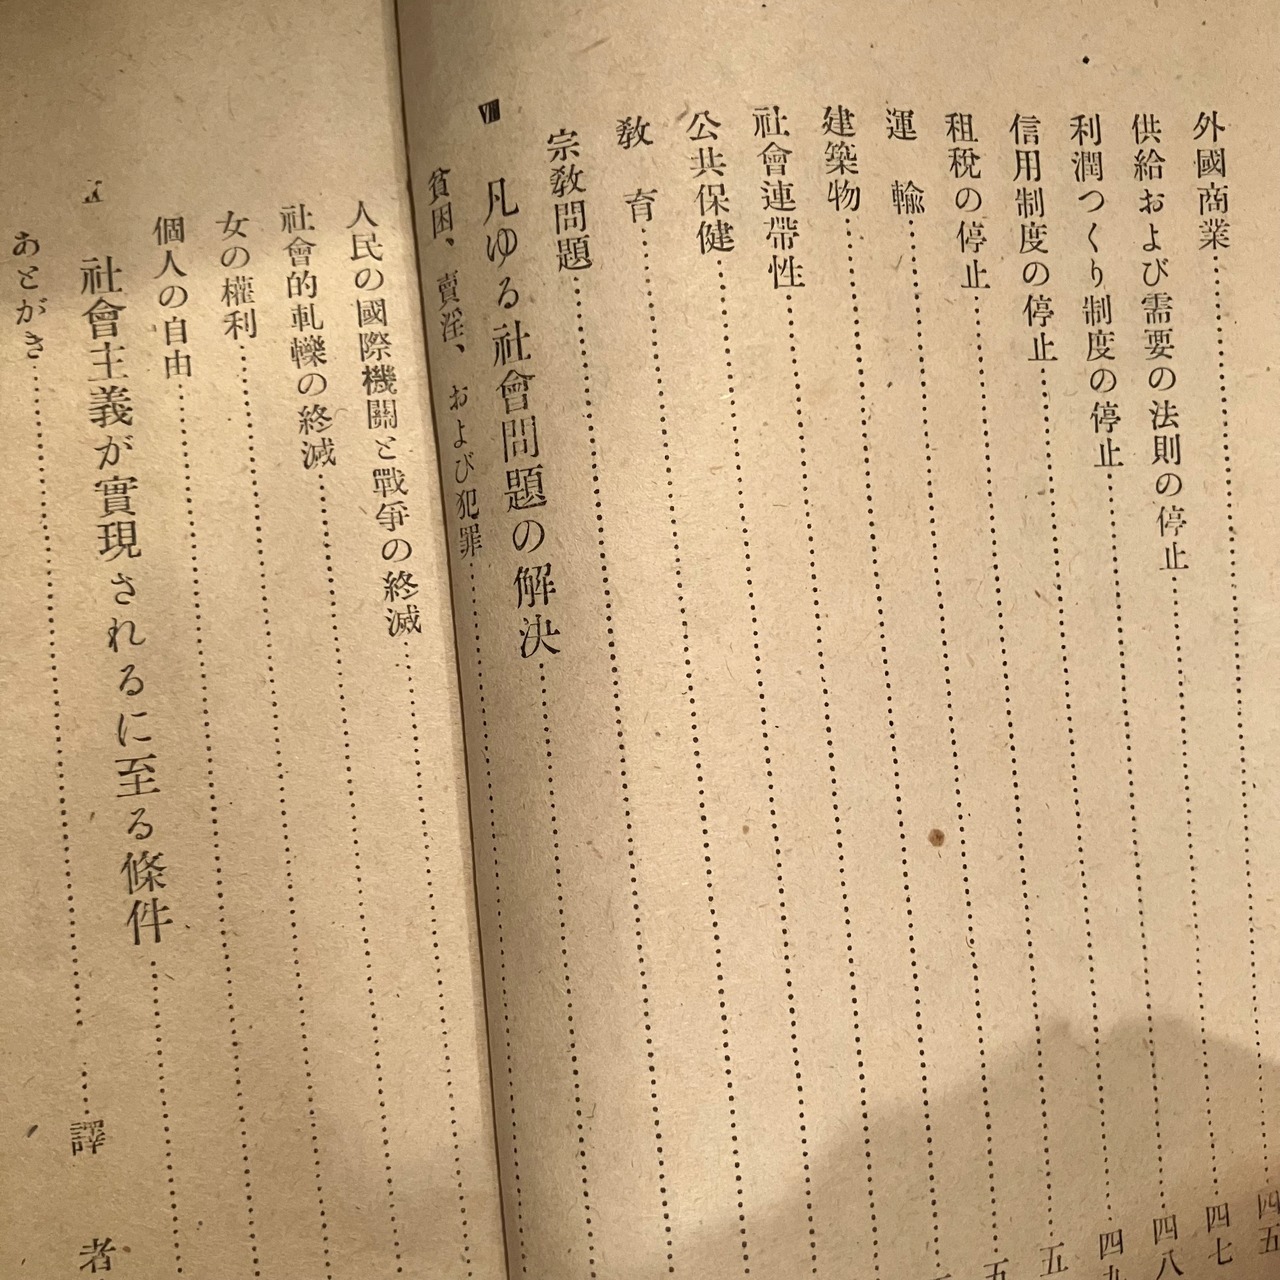 外國商業
供給および需要の法則の停止 四七
利潤つくり制度の停止 四八
信用制度の停止
租稅の停止
運輸
建築物
社會連帶性
公共保健
敎育
宗敎問題
Ⅷ 凡ゆる社會問題の解決
貧困、賣淫、および犯罪
人民の國際機關と戰爭の終滅
社會的軋轢の終滅
女の權利
個人の自由
社會主義が實現されるに至る條件
あとがき 譯者